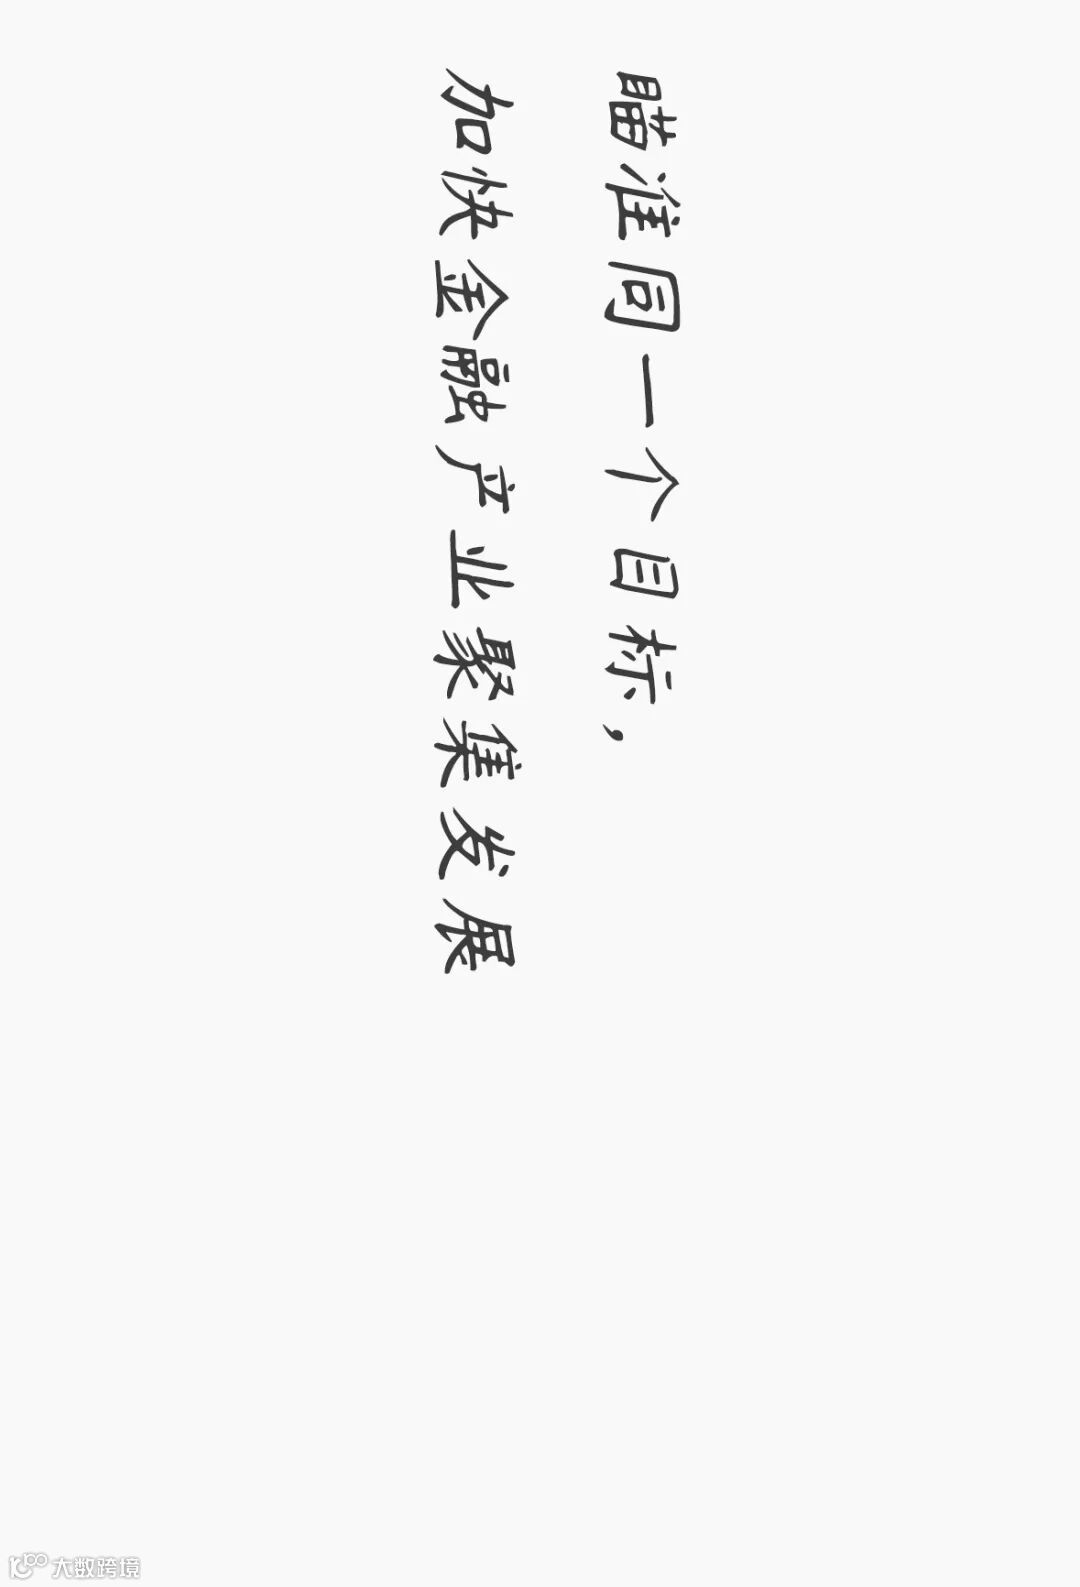 瞄准同一个目标，
加快金融产业聚集发展
大数跨境